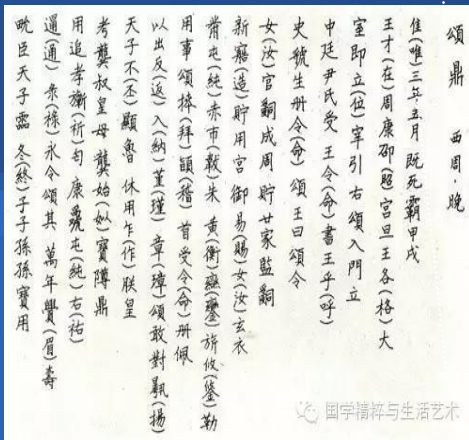 頌鼎　西周·晚
隹(唯)三年五月既死霸甲戌
王才(在)周康卲(昭)宮旦王各(格)大
室即立(位)宰引右頌入門立
中廷尹氏受王令(命)書王乎(呼)
史虢生册令(命)頌王曰頌令
女(汝)官嗣成周貯廿家監嗣
新寤(造)貯用宮御易賜女(汝)玄衣
黹屯(純)赤巿(韍)朱黃(衡)鑾旂攸(鋚)勒
用事頌捧(拜)䭫(稽)首受令(命)册佩
以出反(返)入(納)堇(瑾)章(璋)頌敢對揚(揚)
天子不(丕)顯魯休用乍(作)朕皇
考龔叔皇母龔始(姒)寶䵼鼎
用追孝旂(祈)匄康屯(純)右(祐)
通彔(祿)永令頌其萬年眉(眉)壽
畯臣天子霝冬(終)子子孫孫寶用
国学精粹与生活艺术